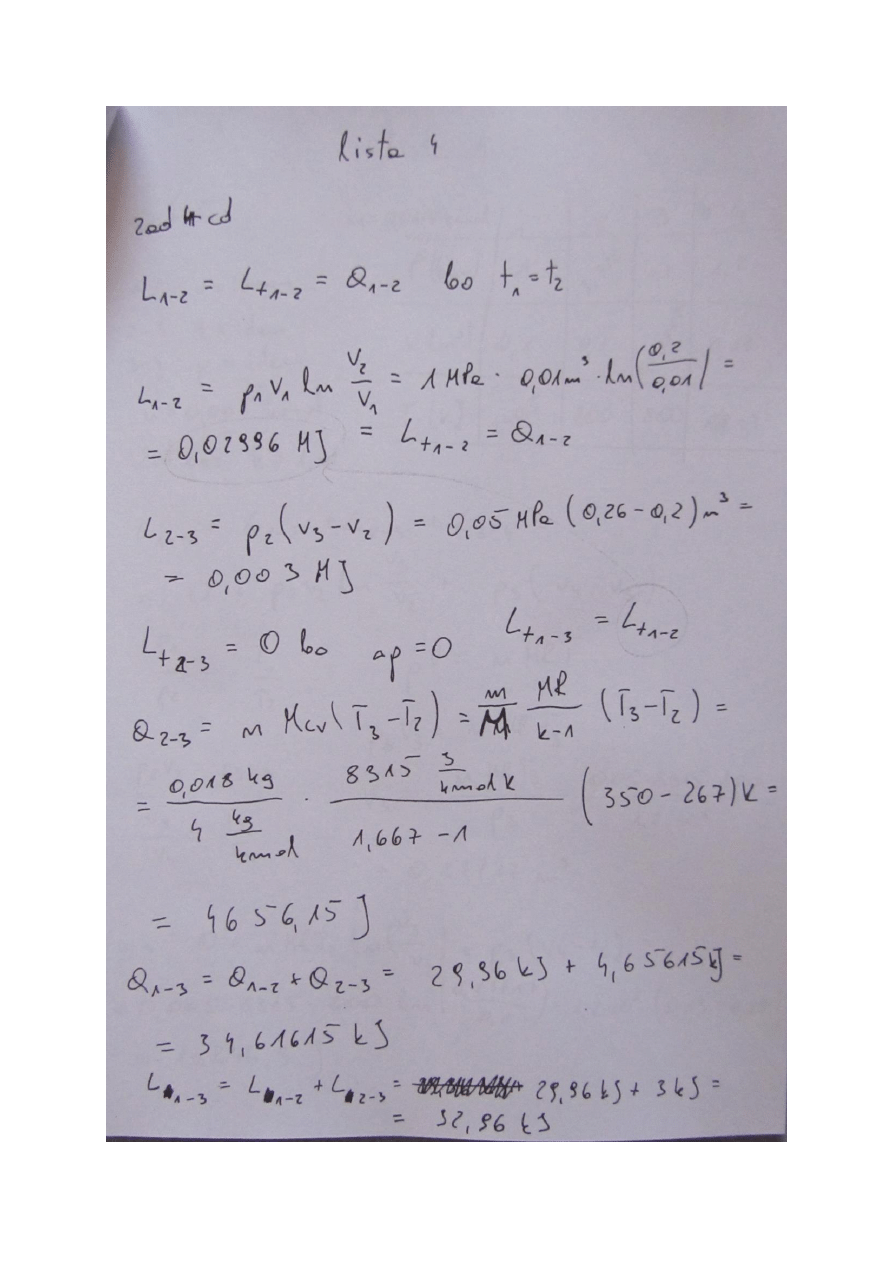 lista 4
zad 4 cd
L₁₋₂ = Lₜ₁₋₂ = Q₁₋₂ bo t₁ = t₂
L₁₋₂ = p₁V₁ ln V₂/V₁ = 1 MPa · 0,01m³ · ln(0,2/0,01) =
= 0,02996 MJ = Lₜ₁₋₂ = Q₁₋₂
L₂₋₃ = p₂(V₃-V₂) = 0,05 MPa (0,26-0,2) m³ =
= 0,003 MJ
Lₜ₂₋₃ = 0 bo ap = 0 Lₜ₁₋₃ = Lₜ₁₋₂
Q₂₋₃ = m Mcv (T₃-T₂) = m/M MR/k-1 (T₃-T₂) =
= 0,018 kg / 4 kg/kmol · 8315 J/kmol K / 1,667 -1 (350-267)K =
= 4656,15 J
Q₁₋₃ = Q₁₋₂ + Q₂₋₃ = 29,96 kJ + 4,65615 kJ =
= 34,61615 kJ
L₁₋₃ = L₁₋₂ + L₂₋₃ = 29,96 kJ + 3 kJ =
= 32,96 kJ